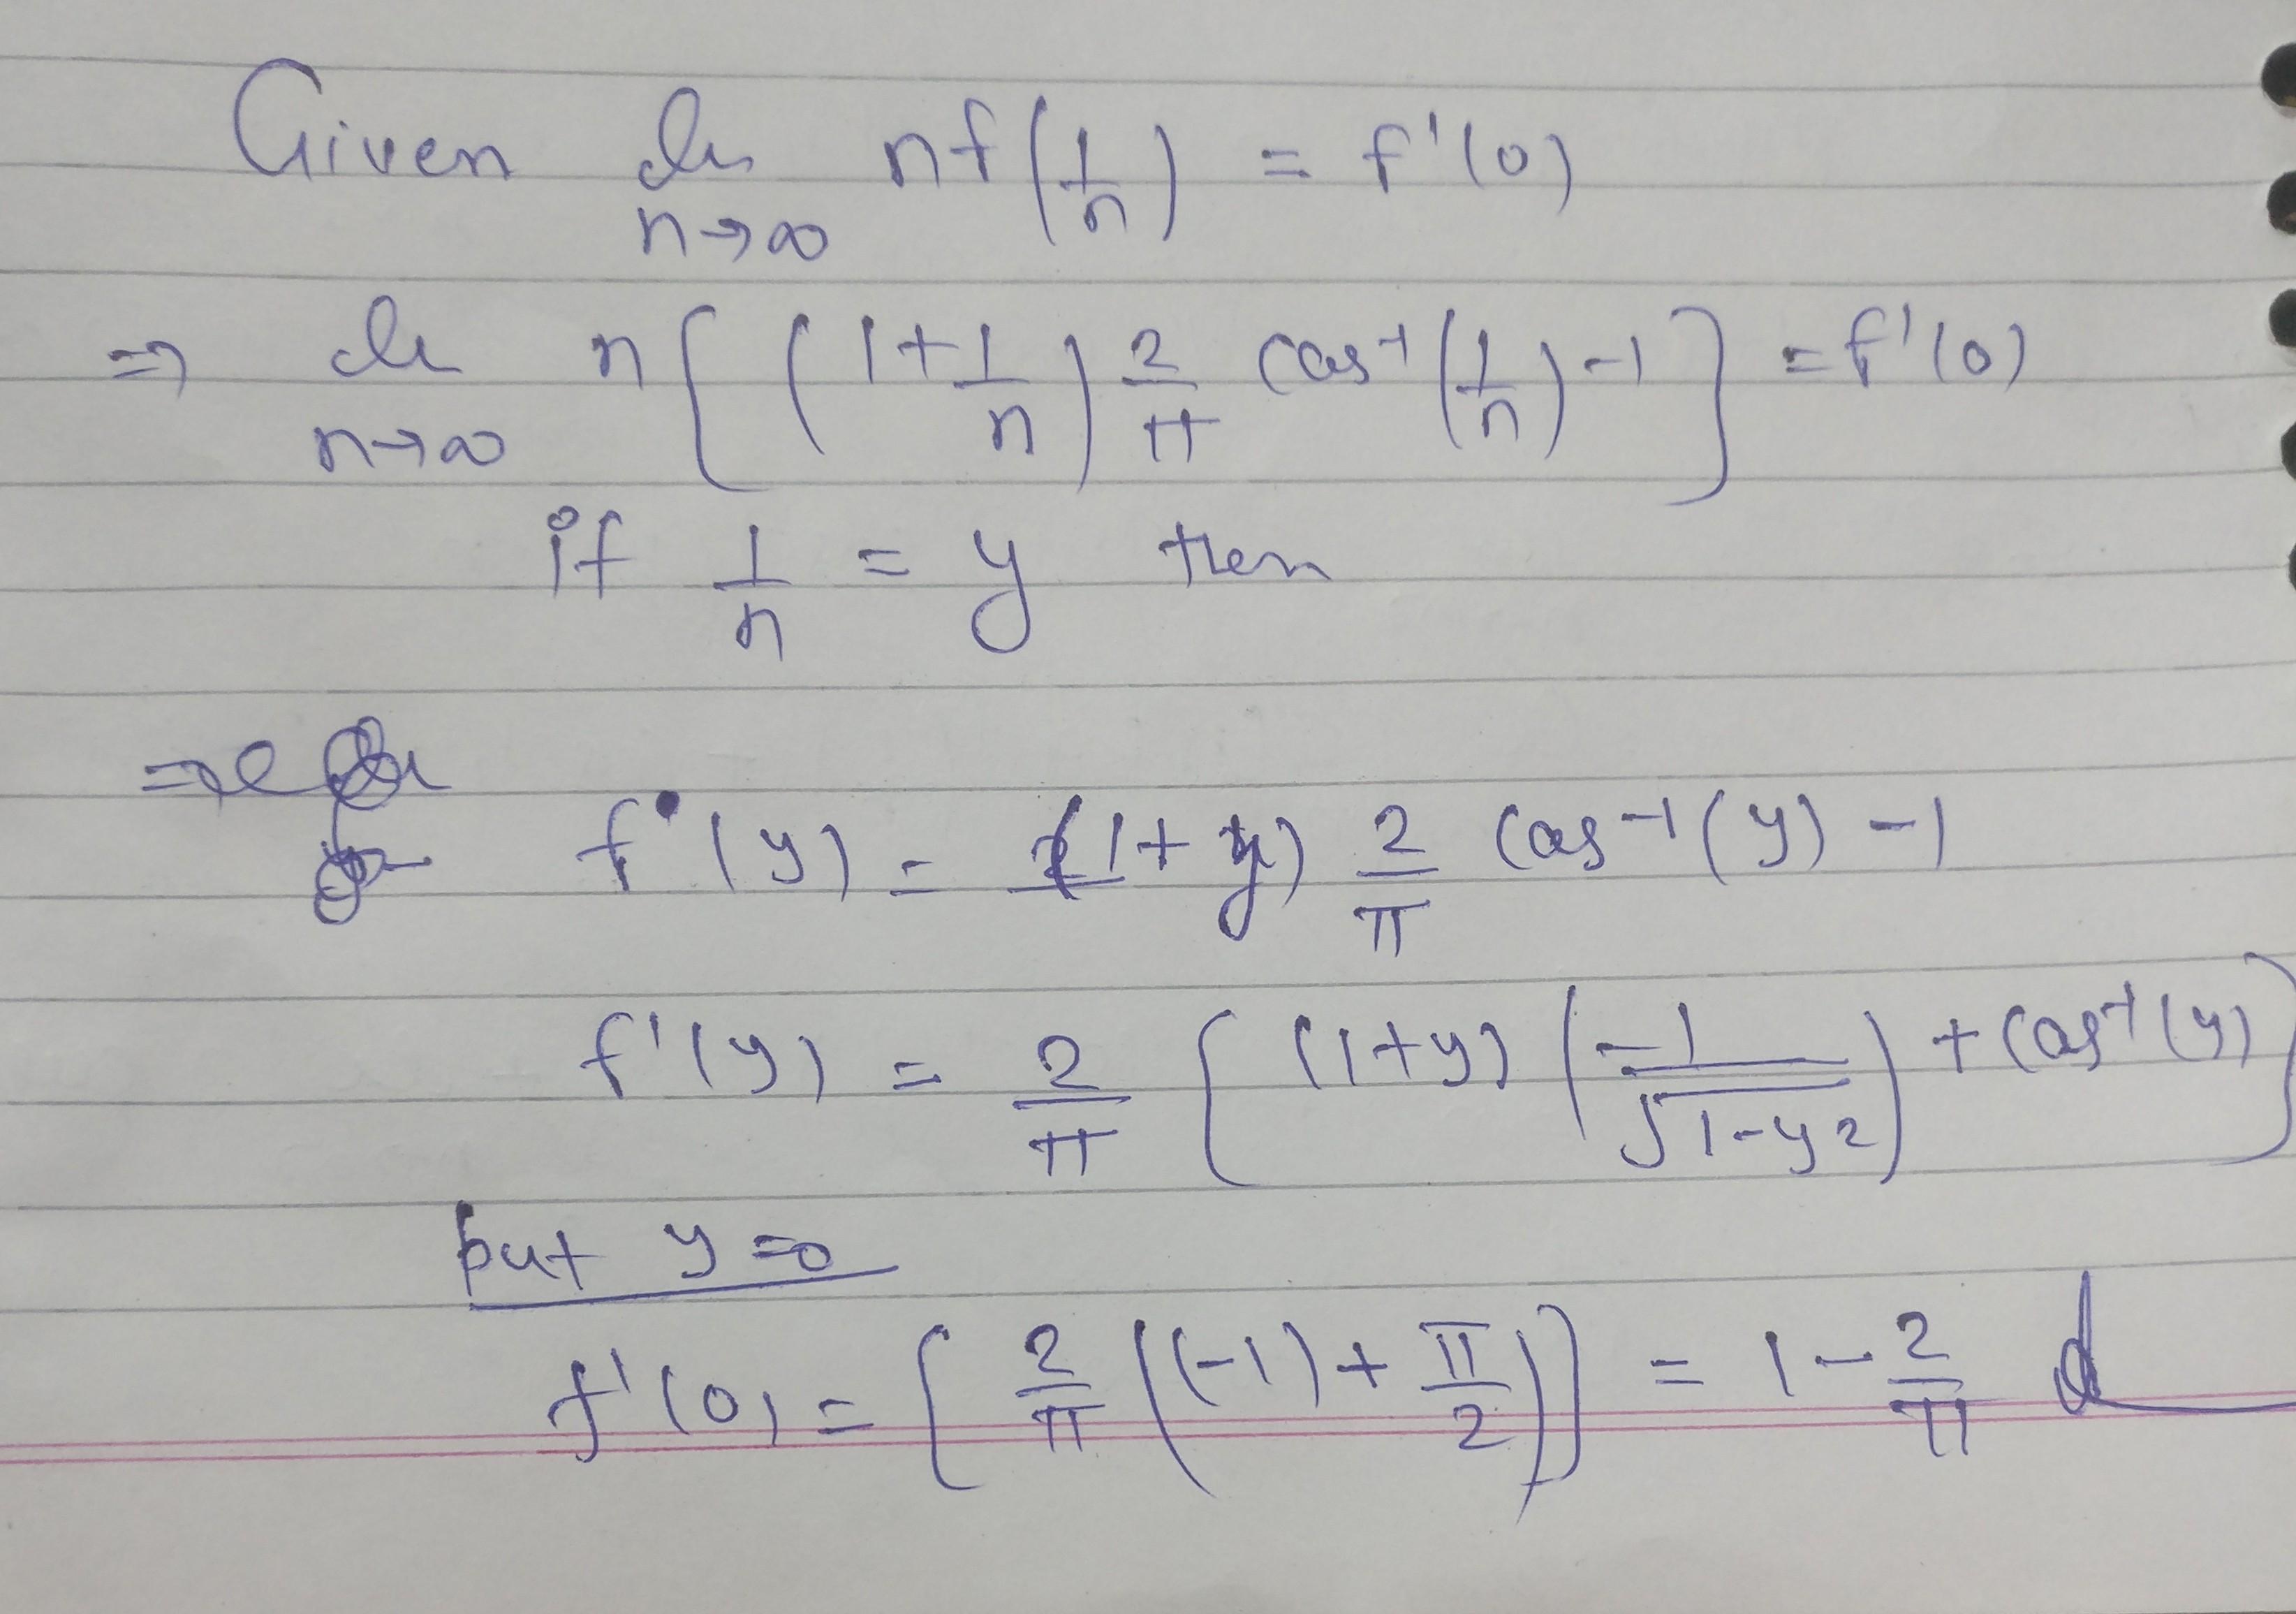 Given lim n→∞ nf(1/n) = f'(0)
⇒ lim n→∞ n[(1+1/n) 2/π cos⁻¹(1/n) - 1] = f'(0)
if 1/n = y then
⇒
f(y) = (1+y) 2/π cos⁻¹(y) - 1
f'(y) = 2/π [(1+y) (-1/√(1-y²)) + cos⁻¹(y)]
put y = 0
f'(0) = [2/π ((-1) + π/2)] = 1 - 2/π